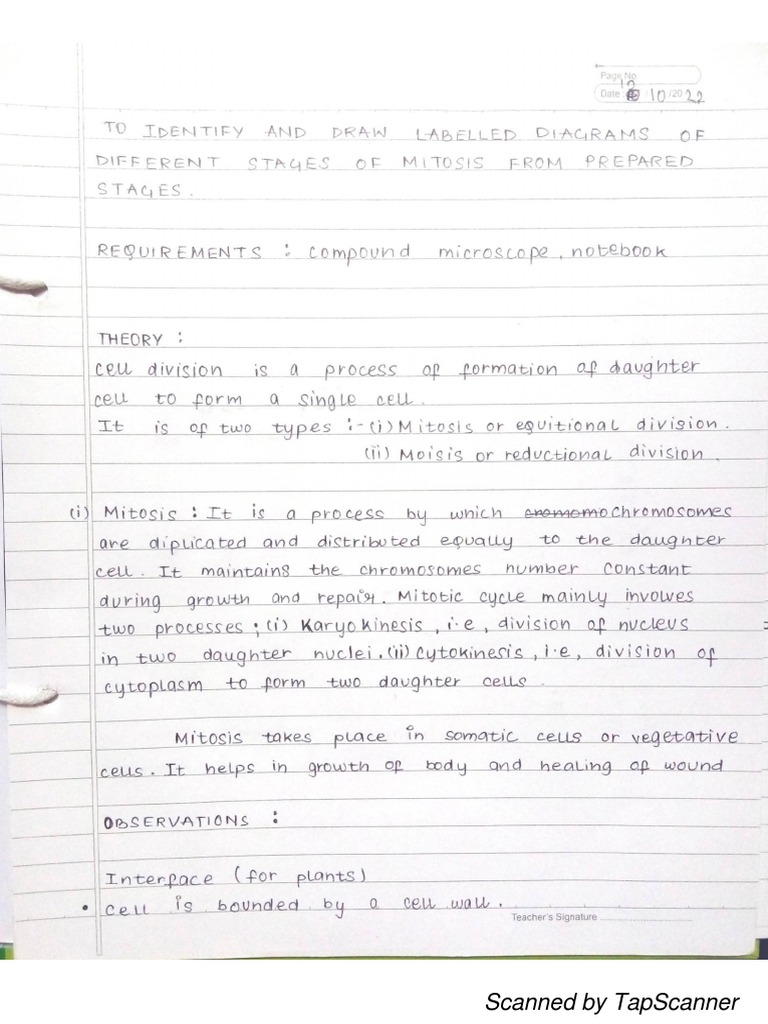 Page No
Date 12 / 10 / 20 22
TO IDENTIFY AND DRAW LABELLED DIAGRAMS OF
DIFFERENT STAGES OF MITOSIS FROM PREPARED
STAGES.
REQUIREMENTS : compound microscope, notebook
THEORY :
cell division is a process of formation of daughter
cell to form a single cell.
It is of two types :- (i) Mitosis or equitional division.
(ii) Moisis or reductional division.
(i) Mitosis : It is a process by which chromosomes
are diplicated and distributed equally to the daughter
cell. It maintains the chromosomes number constant
during growth and repair. Mitotic cycle mainly involves
two processes ; (i) Karyokinesis, i.e, division of nucleus
in two daughter nuclei. (ii) Cytokinesis, i.e, division of
cytoplasm to form two daughter cells.
Mitosis takes place in somatic cells or vegetative
cells. It helps in growth of body and healing of wound
OBSERVATIONS :
Interface (for plants)
• Cell is bounded by a cell wall.
Teacher's Signature
Scanned by TapScanner